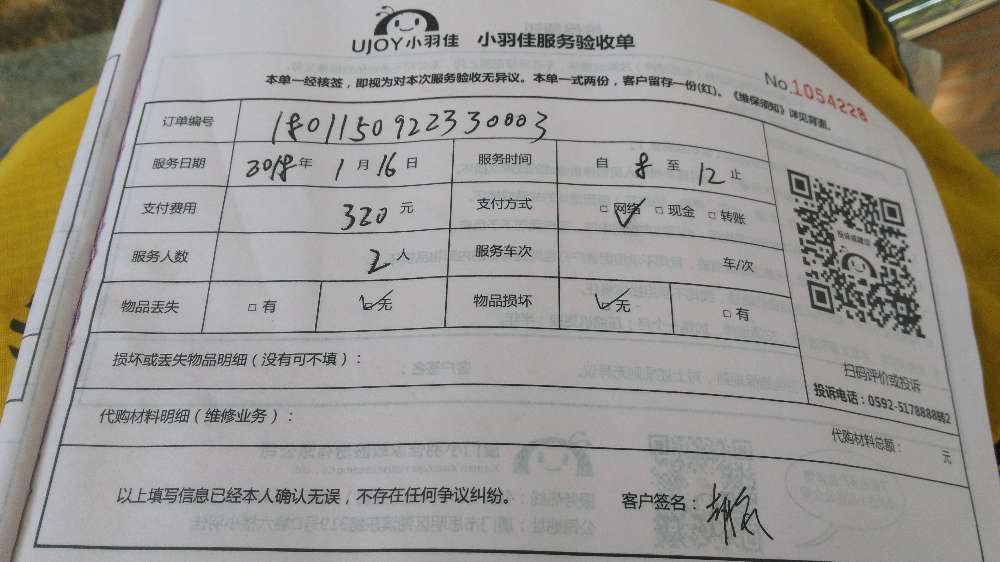 UJOY小羽佳 小羽佳服务验收单
No.1054228
本单一经核签，即视为对本次服务验收无异议。本单一式两份，客户留存一份(红)。《维保须知》详见背面。
订单编号 1801150922330003
服务日期 2018年 1月16日 服务时间 自 8 至 12 止
支付费用 320 元 支付方式 □网络 □现金 □转账
服务人数 2人 服务车次 车/次
物品丢失 □有 □无 物品损坏 □无 □有
扫码评价或投诉
投诉电话：0592-5178888转2
损坏或丢失物品明细（没有可不填）：
代购材料明细（维修业务）：
代购材料总额： 元
以上填写信息已经本人确认无误，不存在任何争议纠纷。 客户签名：